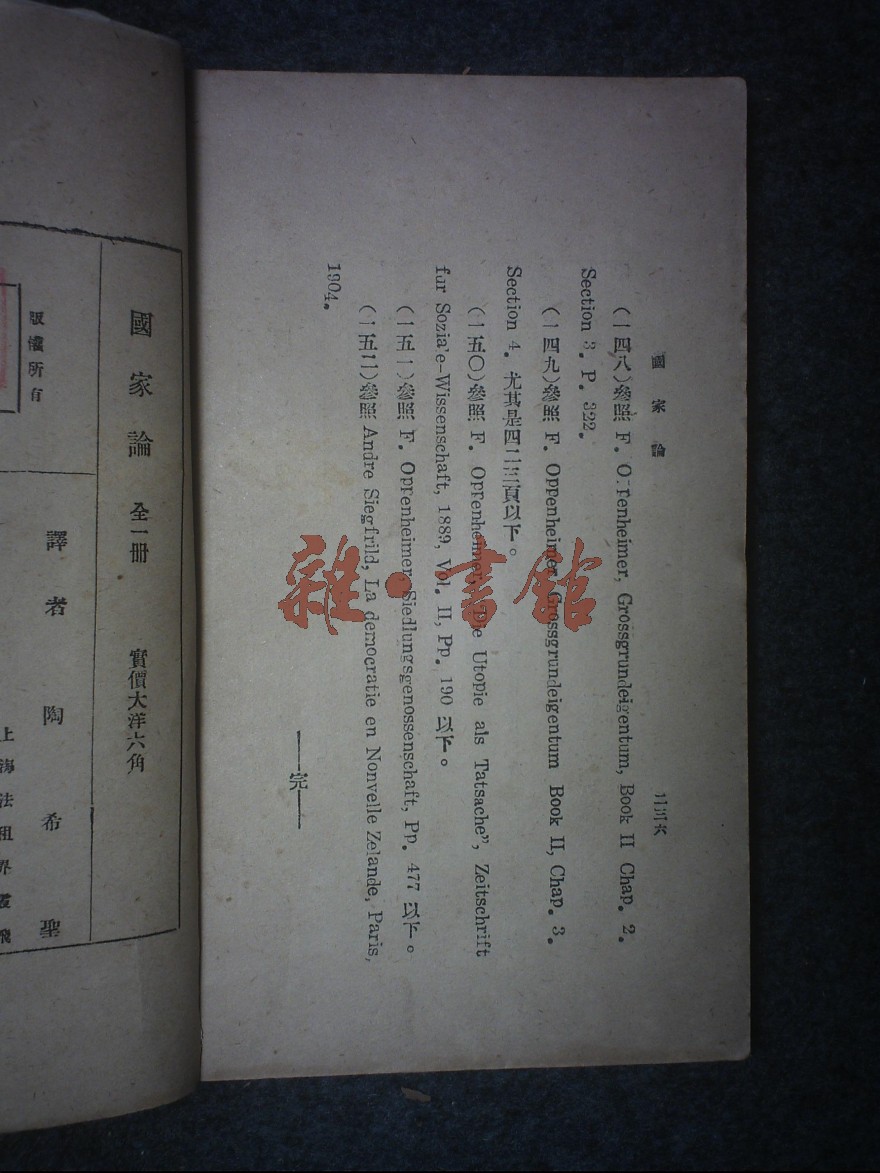 國家論
二三六
(一四八)參照 F. Oppenheimer, Grossgrundeigentum, Book II Chap. 2.
Section 3. P. 322.
(一四九)參照 F. Oppenheimer, Grossgrundeigentum Book II, Chap. 3.
Section 4. 尤其是四二三頁以下。
(一五〇)參照 F. Oppenheimer, "Die Utopie als Tatsache", Zeitschrift
fur Sozia'e-Wissenschaft, 1889, Vol. II, Pp. 190 以下。
(一五一)參照 F. Oppenheimer Siedlungsgenossenschaft, Pp. 477 以下。
(一五二)參照 Andre Siegfrild, La democratie en Nonvelle Zelande, Paris,
1904.
——完——
國家論 全一冊 實價大洋六角
譯者 陶希聖
上海法租界霞飛
版權所有
雜·書館